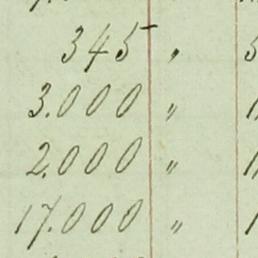 345 "
3.000 "
2.000 "
17.000 "